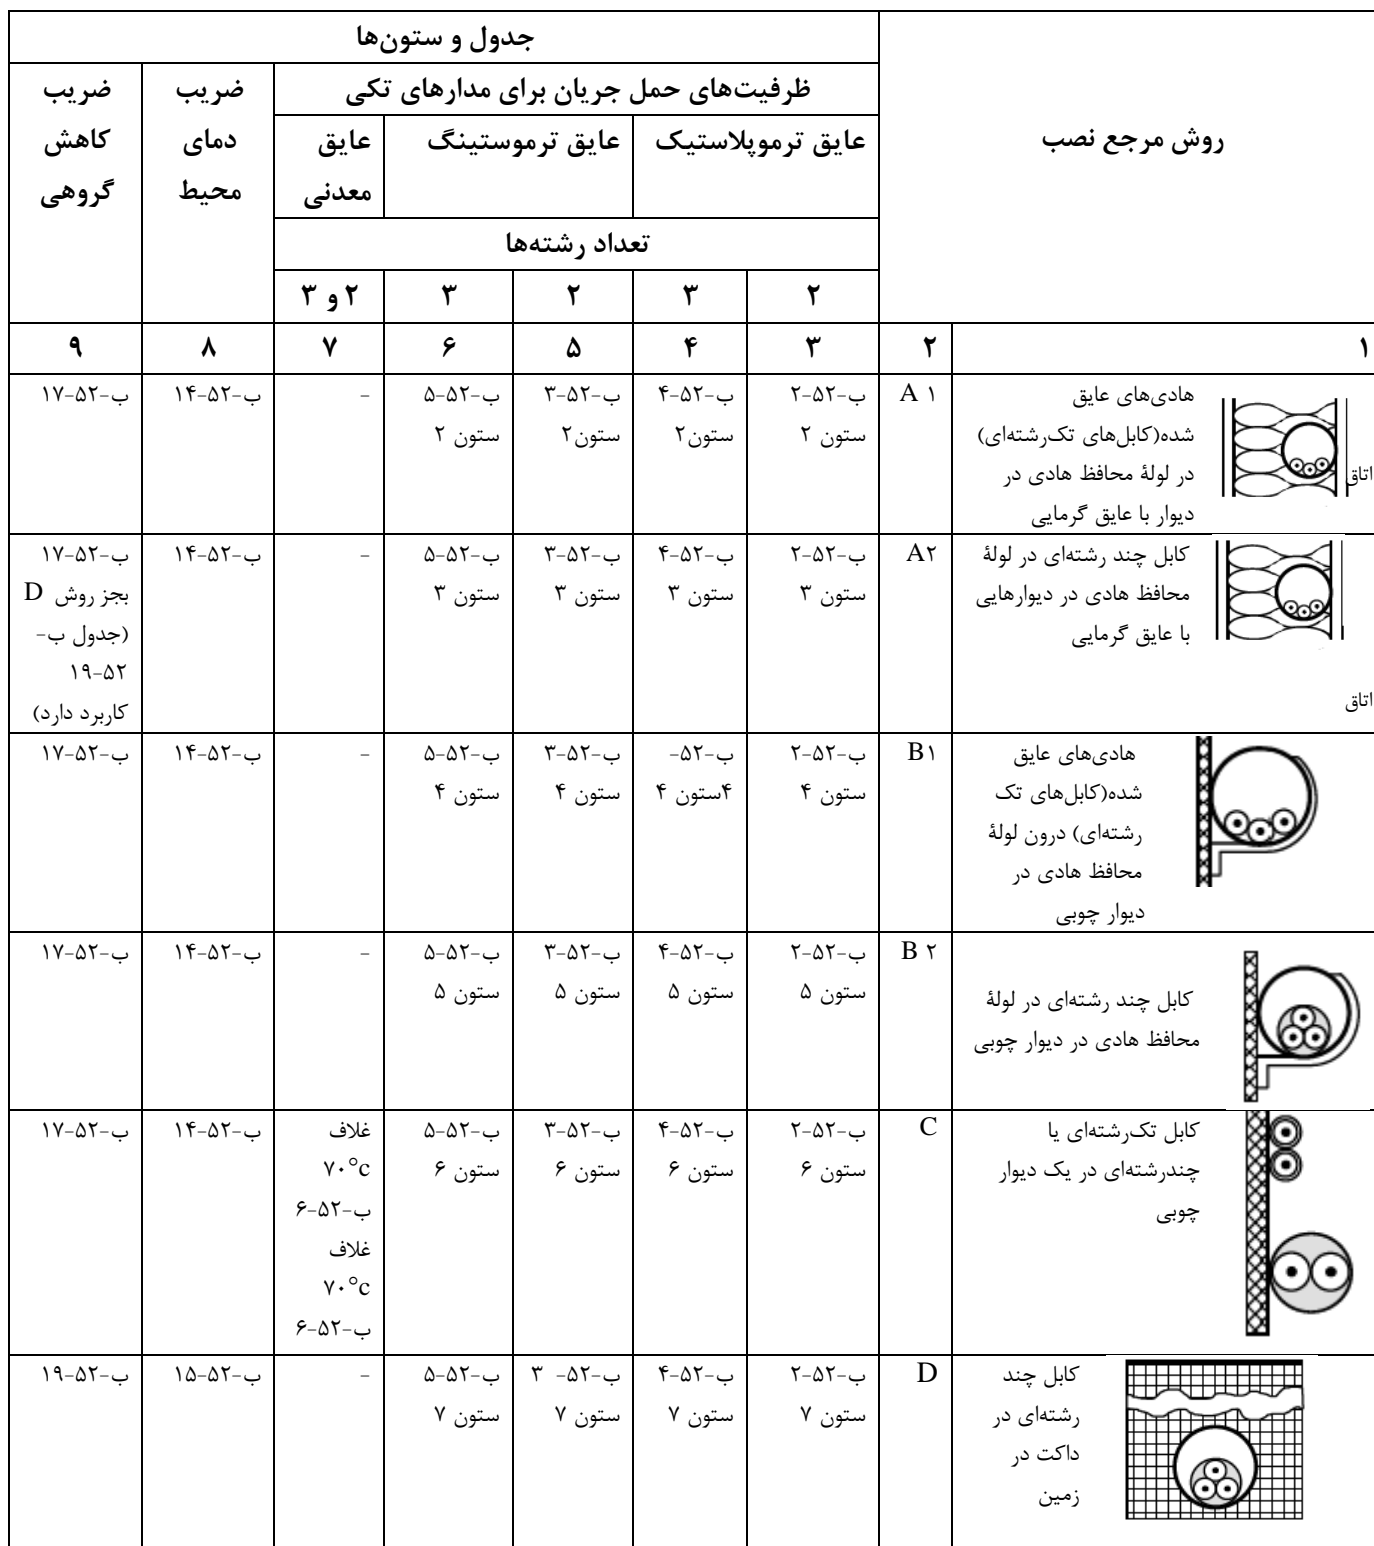 جدول و ستون‌ها
روش مرجع نصب
ظرفیت‌های حمل جریان برای مدارهای تکی
ضریب
دمای
محیط
ضریب
کاهش
گروهی
عایق ترموپلاستیک
عایق ترموستینگ
عایق
معدنی
تعداد رشته‌ها
۲
۳
۲
۳
۲ و ۳
۱
۲
۳
۴
۵
۶
۷
۸
۹
اتاق
هادی‌های عایق
شده(کابل‌های تک‌رشته‌ای)
در لولهٔ محافظ هادی در
دیوار با عایق گرمایی
A ۱
ب-۵۲-۲
ستون ۲
ب-۵۲-۴
ستون۲
ب-۵۲-۳
ستون۲
ب-۵۲-۵
ستون ۲
-
ب-۵۲-۱۴
ب-۵۲-۱۷
اتاق
کابل چند رشته‌ای در لولهٔ
محافظ هادی در دیوارهایی
با عایق گرمایی
A۲
ب-۵۲-۲
ستون ۳
ب-۵۲-۴
ستون ۳
ب-۵۲-۳
ستون ۳
ب-۵۲-۵
ستون ۳
-
ب-۵۲-۱۴
ب-۵۲-۱۷
بجز روش D
(جدول ب-
۵۲-۱۹
کاربرد دارد)
هادی‌های عایق
شده(کابل‌های تک
رشته‌ای) درون لولهٔ
محافظ هادی در
دیوار چوبی
B۱
ب-۵۲-۲
ستون ۴
ب-۵۲-
۴ستون ۴
ب-۵۲-۳
ستون ۴
ب-۵۲-۵
ستون ۴
-
ب-۵۲-۱۴
ب-۵۲-۱۷
کابل چند رشته‌ای در لولهٔ
محافظ هادی در دیوار چوبی
B ۲
ب-۵۲-۲
ستون ۵
ب-۵۲-۴
ستون ۵
ب-۵۲-۳
ستون ۵
ب-۵۲-۵
ستون ۵
-
ب-۵۲-۱۴
ب-۵۲-۱۷
کابل تک‌رشته‌ای یا
چندرشته‌ای در یک دیوار
چوبی
C
ب-۵۲-۲
ستون ۶
ب-۵۲-۴
ستون ۶
ب-۵۲-۳
ستون ۶
ب-۵۲-۵
ستون ۶
غلاف
۷۰°c
ب-۵۲-۶
غلاف
۷۰°c
ب-۵۲-۶
ب-۵۲-۱۴
ب-۵۲-۱۷
کابل چند
رشته‌ای در
داکت در
زمین
D
ب-۵۲-۲
ستون ۷
ب-۵۲-۴
ستون ۷
ب-۵۲- ۳
ستون ۷
ب-۵۲-۵
ستون ۷
-
ب-۵۲-۱۵
ب-۵۲-۱۹